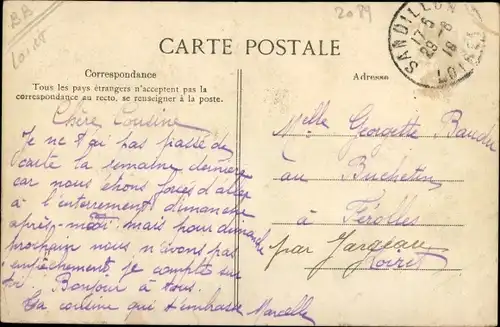 BB
Loiret
2089
CARTE POSTALE
SANDILLON
LOIRET
Correspondance
Adresse
Tous les pays étrangers n'acceptent pas la
correspondance au recto, se renseigner à la poste.
Chère Cousine
Je ne t'ai pas passé de
la semaine dernière
car nous étions forcés d'aller
à l'enterrement dimanche
après-midi, mais pour dimanche
prochain nous n'avons pas
empêchement, je compte sur
toi. Bonjour à tous.
Ta cousine qui t'embrasse Marcelle
Melle Georgette Baudu
au Bucheten
à Férolles
par Jargeau
Loiret